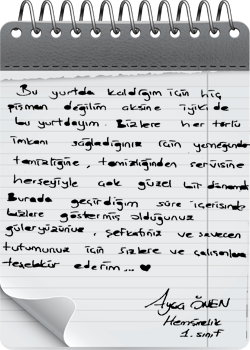 Bu yurtda kaldığım için hiç
pişman değilim aksine iyikide
bu yurtdayım. Bizlere her türlü
imkanı sağladığınız için yemeğinden
temizliğine, temizliğinden servisine
herşeyiyle çok güzel bir dönemdi
Burada geçirdiğim süre içerisinde
bizlere göstermiş olduğunuz
güleryüzünüz, şefkatiniz ve sevecen
tutumunuz için sizlere ve çalışanlara
teşekkür ederim... ♥
Ayça ÖNEN
Hemşirelik
1. sınıf